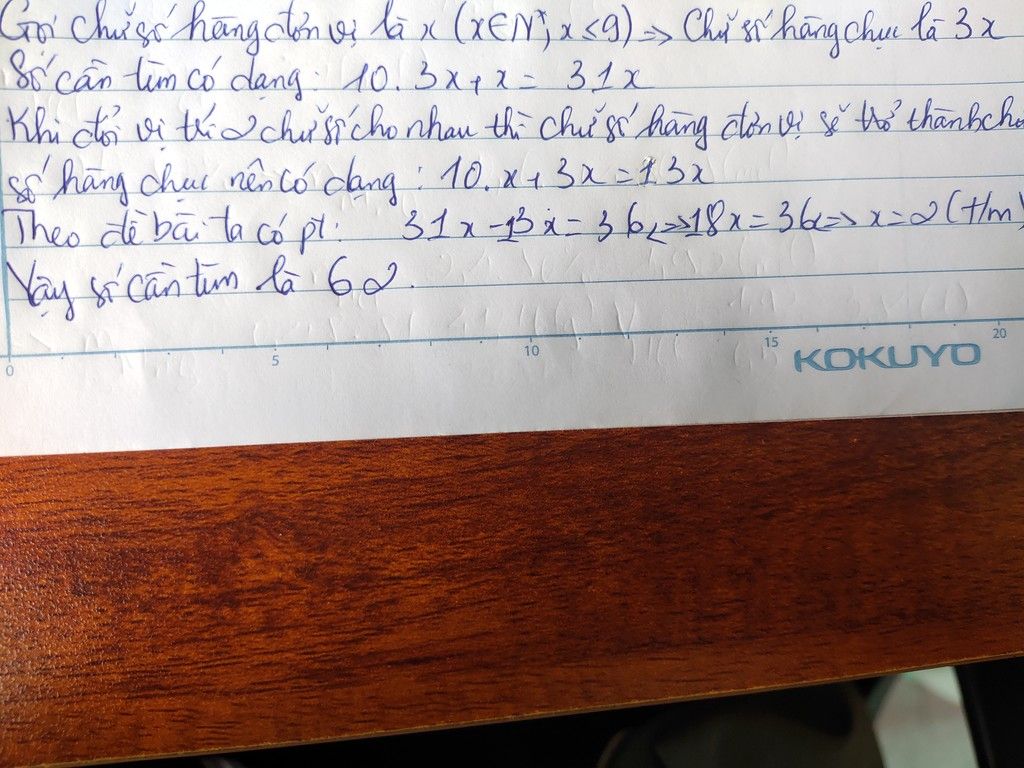 Gọi chữ số hàng đơn vị là x (x∈N*, x<9) => Chữ số hàng chục là 3x
Số cần tìm có dạng: 10.3x+x= 31x
Khi đổi vị trí 2 chữ số cho nhau thì chữ số hàng đơn vị sẽ trở thành chữ
số hàng chục nên có dạng: 10.x+3x=13x
Theo đề bài ta có pt: 31x-13x=36<=>18x=36=> x=2 (t/m)
Vậy số cần tìm là 62.
0 5 10 15 20
KOKUYO